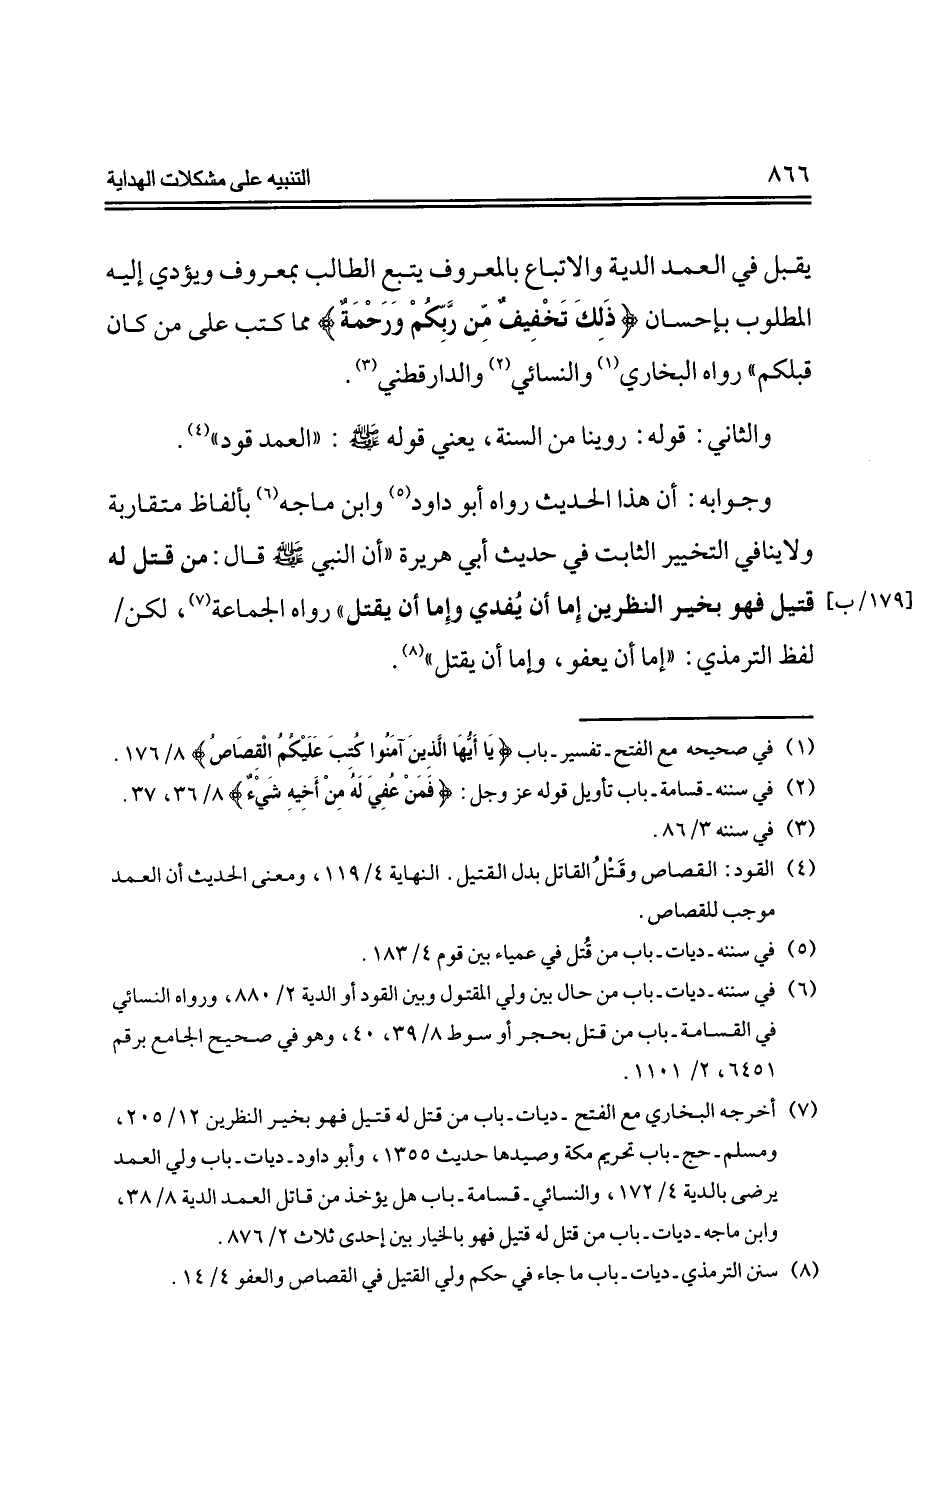 ٨٦٦
التنبيه على مشكلات الهداية
يقبل في العمد الدية والاتباع بالمعروف يتبع الطالب بمعروف ويؤدي إليه
المطلوب بإحسان ﴿ ذَلِكَ تَخْفِيفٌ مِّن رَّبِّكُمْ وَرَحْمَةٌ ﴾ مما كتب على من كان
قبلكم» رواه البخاري(١) والنسائي(٢) والدارقطني(٣).
والثاني: قوله: روينا من السنة، يعني قوله ﷺ : «العمد قود»(٤).
وجوابه: أن هذا الحديث رواه أبو داود(٥) وابن ماجه(٦) بألفاظ متقاربة
ولاينافي التخيير الثابت في حديث أبي هريرة «أن النبي ﷺ قال: من قتل له
قتيل فهو بخير النظرين إما أن يُفدي وإما أن يقتل» رواه الجماعة(٧)، لكن/ [١٧٩/ ب]
لفظ الترمذي: «إما أن يعفو، وإما أن يقتل»(٨).
(١) في صحيحه مع الفتح ـ تفسير ـ باب ﴿ يَا أَيُّهَا الَّذِينَ آمَنُوا كُتِبَ عَلَيْكُمُ الْقِصَاصُ ﴾ ٨/ ١٧٦ .
(٢) في سننه ـ قسامة ـ باب تأويل قوله عز وجل: ﴿ فَمَنْ عُفِيَ لَهُ مِنْ أَخِيهِ شَيْءٌ ﴾ ٨/ ٣٦، ٣٧ .
(٣) في سننه ٣/ ٨٦ .
(٤) القود: القصاص وقَتْلُ القاتل بدل القتيل. النهاية ٤/ ١١٩، ومعنى الحديث أن العمد
موجب للقصاص.
(٥) في سننه ـ ديات ـ باب من قُتل في عمياء بين قوم ٤/ ١٨٣ .
(٦) في سننه ـ ديات ـ باب من حال بين ولي المقتول وبين القود أو الدية ٢/ ٨٨٠، ورواه النسائي
في القسامة ـ باب من قتل بحجر أو سوط ٨/ ٣٩، ٤٠، وهو في صحيح الجامع برقم
٦٤٥١، ٢/ ١١٠١ .
(٧) أخرجه البخاري مع الفتح ـ ديات ـ باب من قتل له قتيل فهو بخير النظرين ١٢/ ٢٠٥،
ومسلم ـ حج ـ باب تحريم مكة وصيدها حديث ١٣٥٥، وأبو داود ـ ديات ـ باب ولي العمد
يرضى بالدية ٤/ ١٧٢، والنسائي ـ قسامة ـ باب هل يؤخذ من قاتل العمد الدية ٨/ ٣٨،
وابن ماجه ـ ديات ـ باب من قتل له قتيل فهو بالخيار بين إحدى ثلاث ٢/ ٨٧٦ .
(٨) سنن الترمذي ـ ديات ـ باب ما جاء في حكم ولي القتيل في القصاص والعفو ٤/ ١٤ .